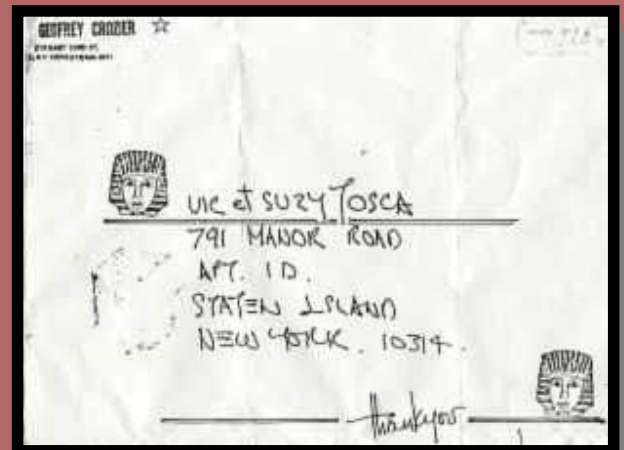 GEOFREY CROZIER
VIC et SUZY TOSCA
791 MANOR ROAD
APT. 1D.
STATEN ISLAND
NEW YORK. 10314.
thankyou